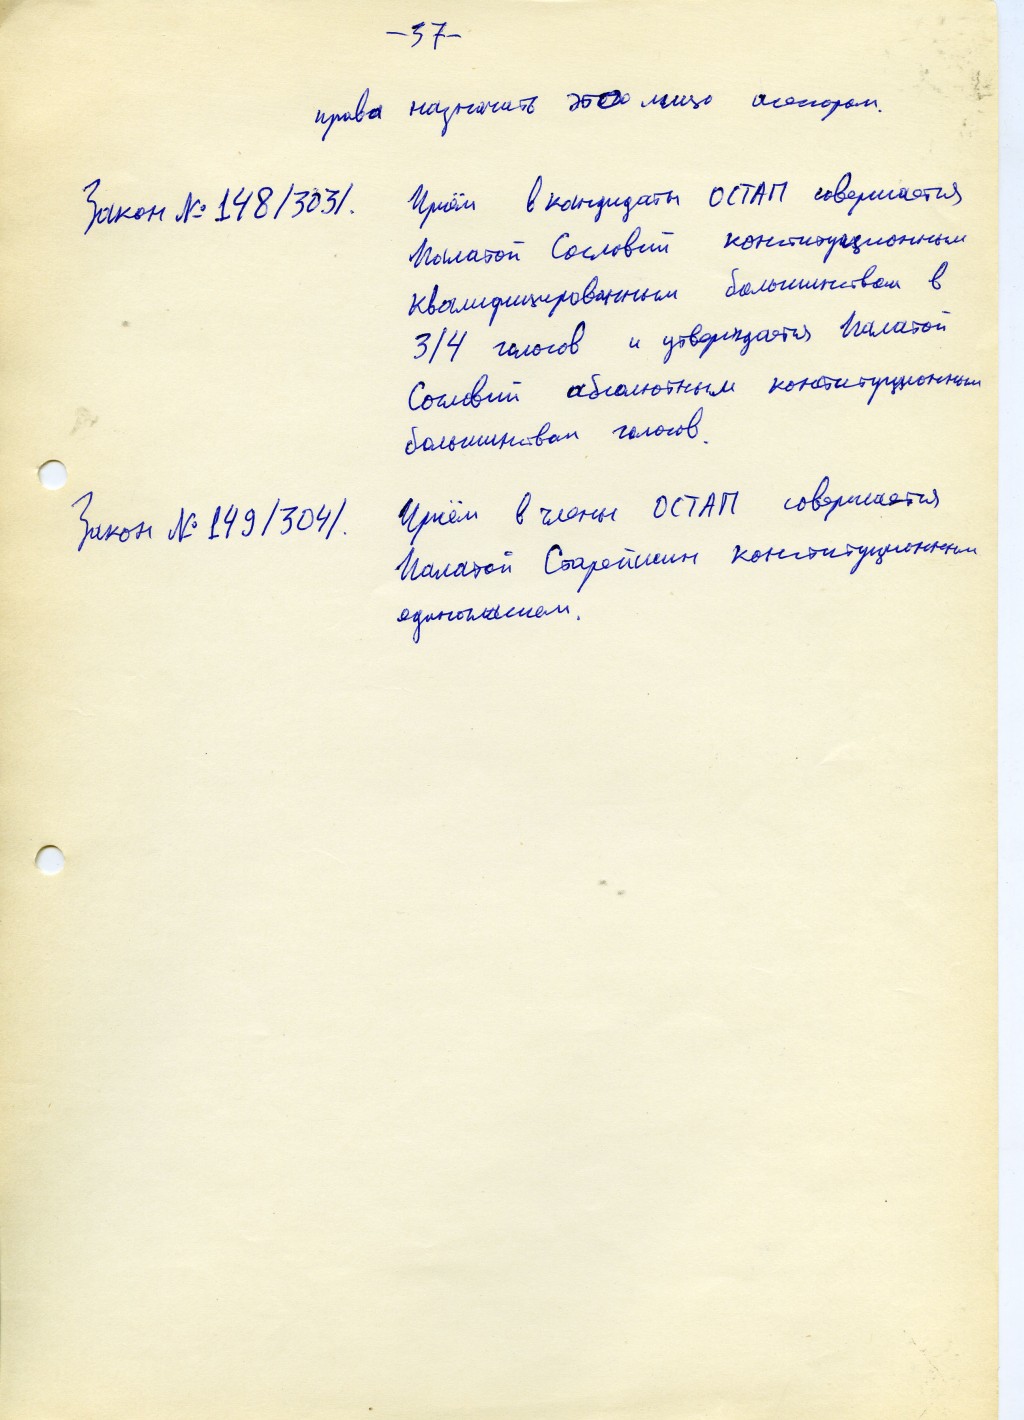 -37-
права назначать это лицо асессором.
Закон № 148/303/. Приём в кандидаты ОСТАП совершается
Палатой Сословий конституционным
квалифицированным большинством в
3/4 голосов и утверждается Палатой
Сословий абсолютным конституционным
большинством голосов.
Закон № 149/304/. Приём в члены ОСТАП совершается
Палатой Старейшин конституционным
единогласием.